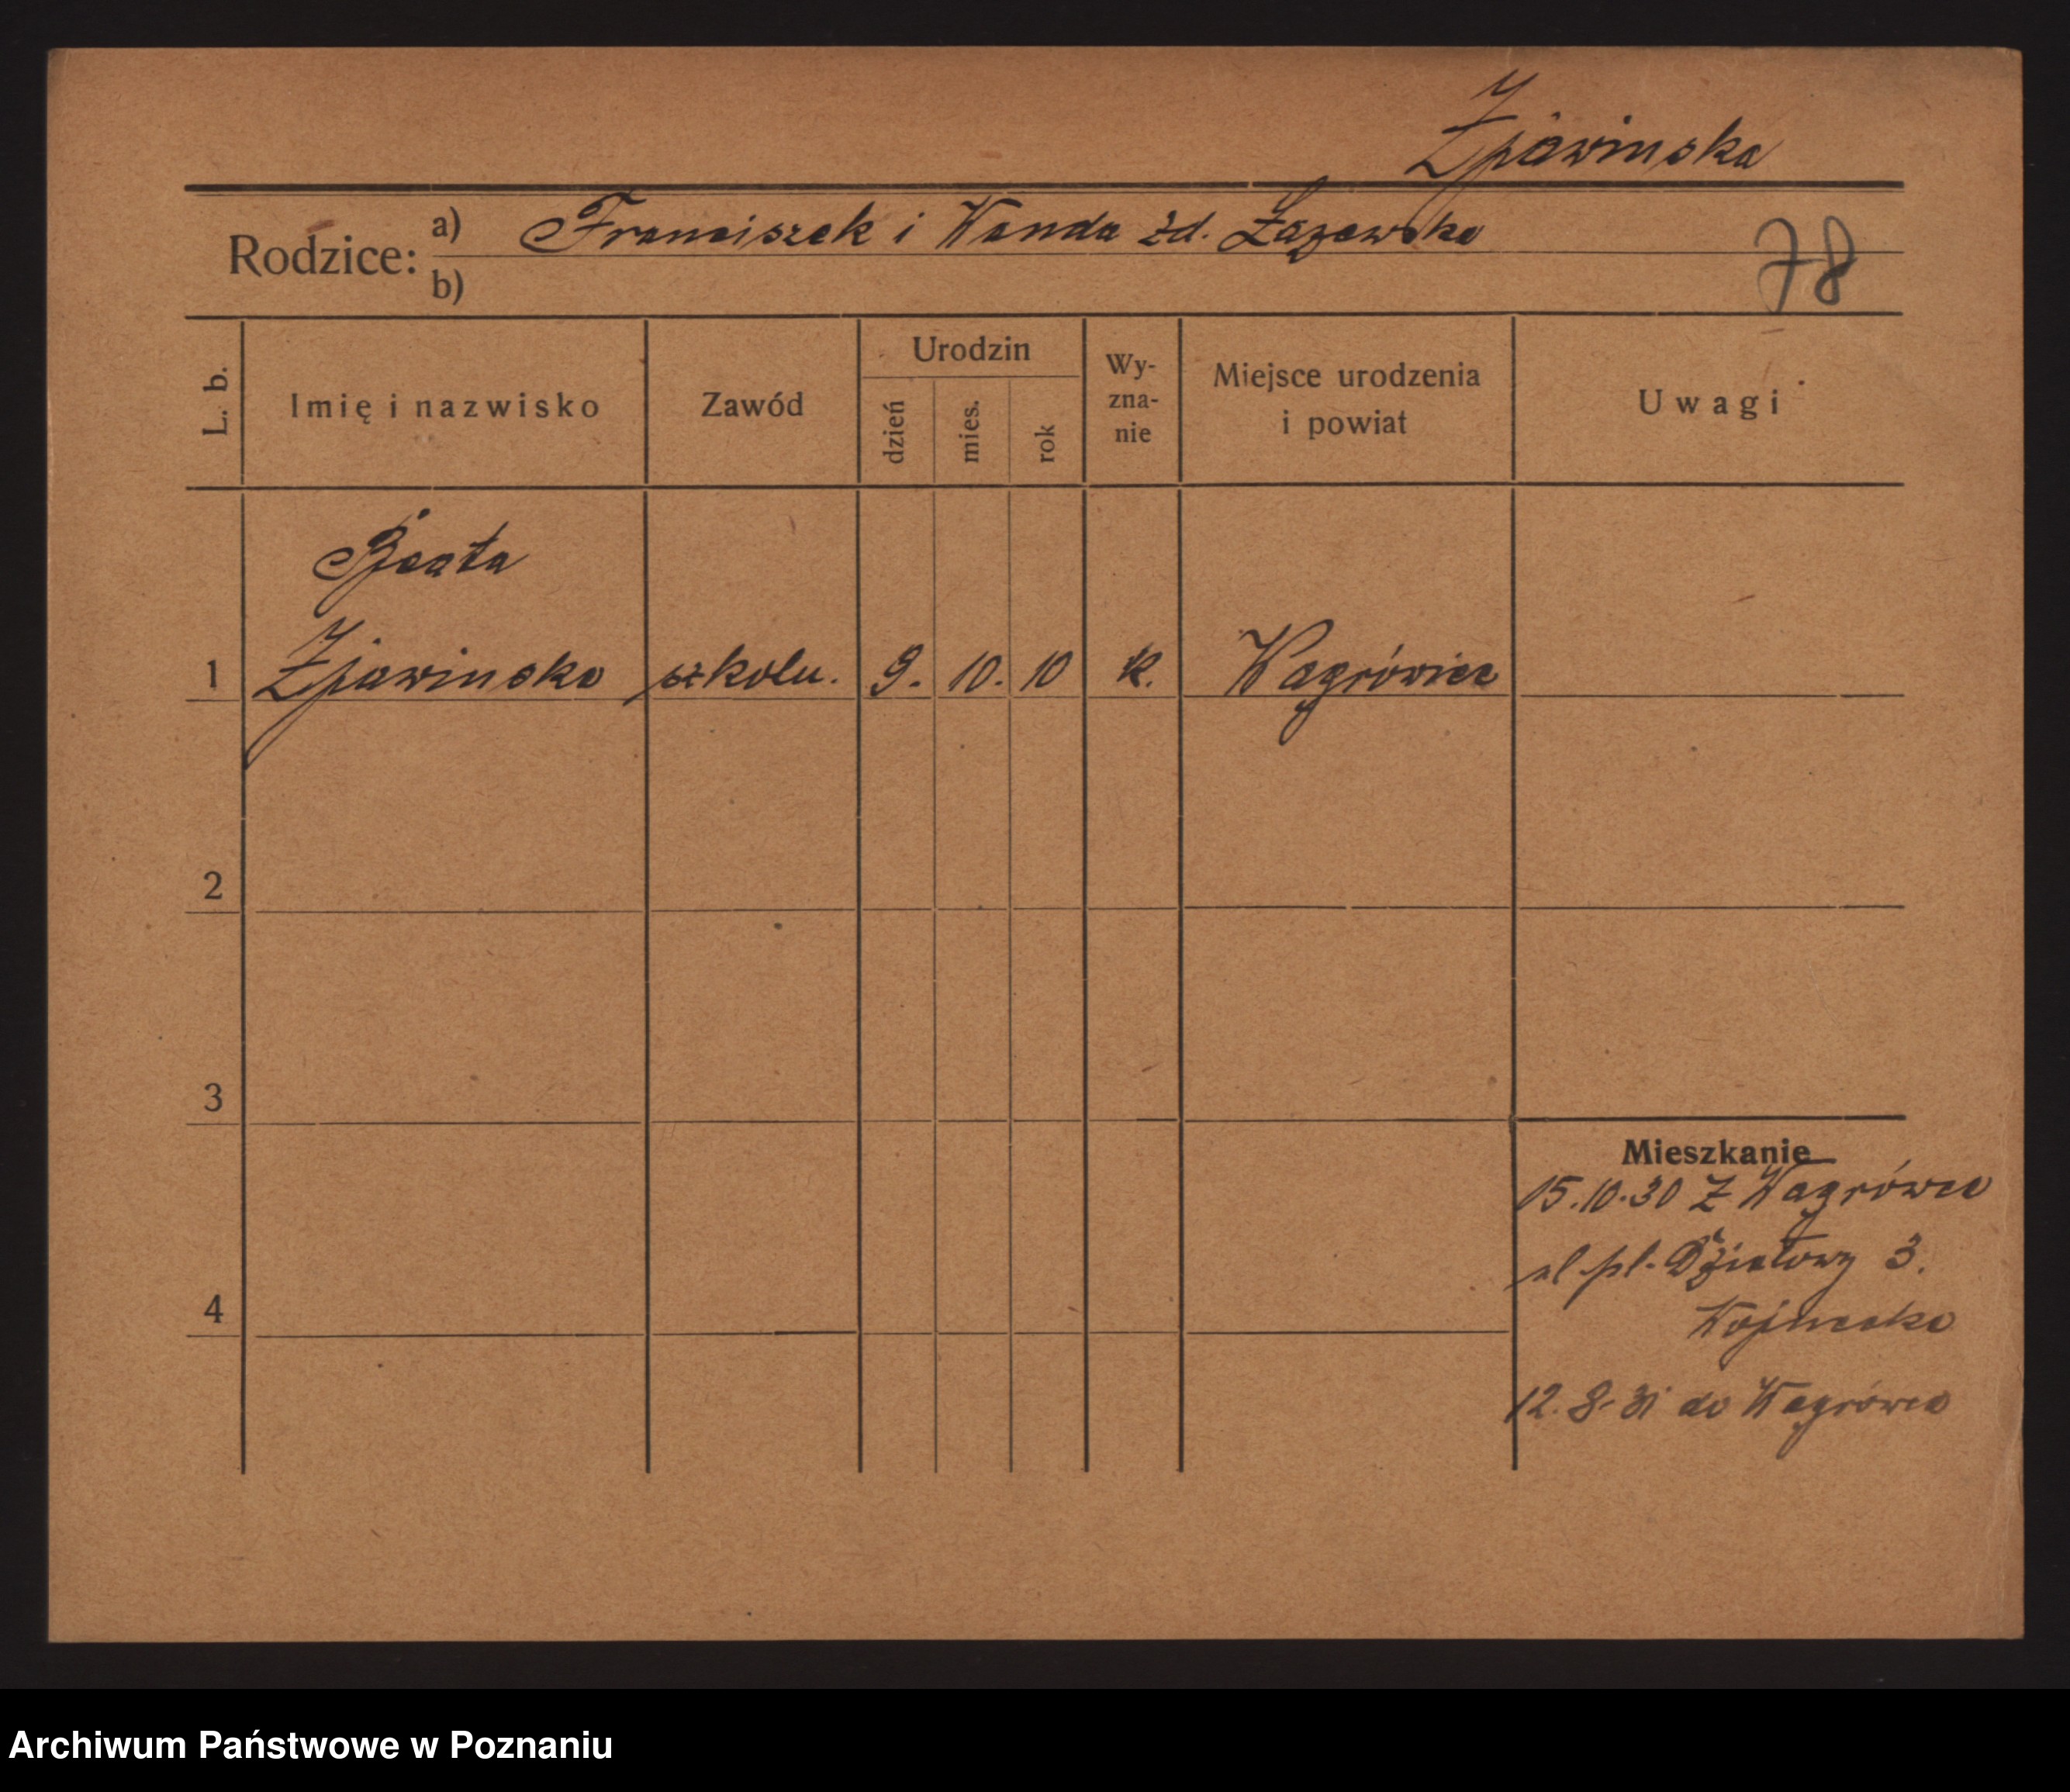 Zjawinska
Rodzice: a) Franciszek i Wanda zd. Łazewska
b)
78
L. b.
Imię i nazwisko
Zawód
Urodzin
dzień
mies.
rok
Wy-
zna-
nie
Miejsce urodzenia
i powiat
Uwagi
Beata
1 Zjawinska szkolu. 9. 10. 10 k. Wągrówiec
2
3
Mieszkanie
15.10.30 z Wągrówca
pl. Działowy 3.
4
12.8.31 do Wągrówca
Archiwum Państwowe w Poznaniu